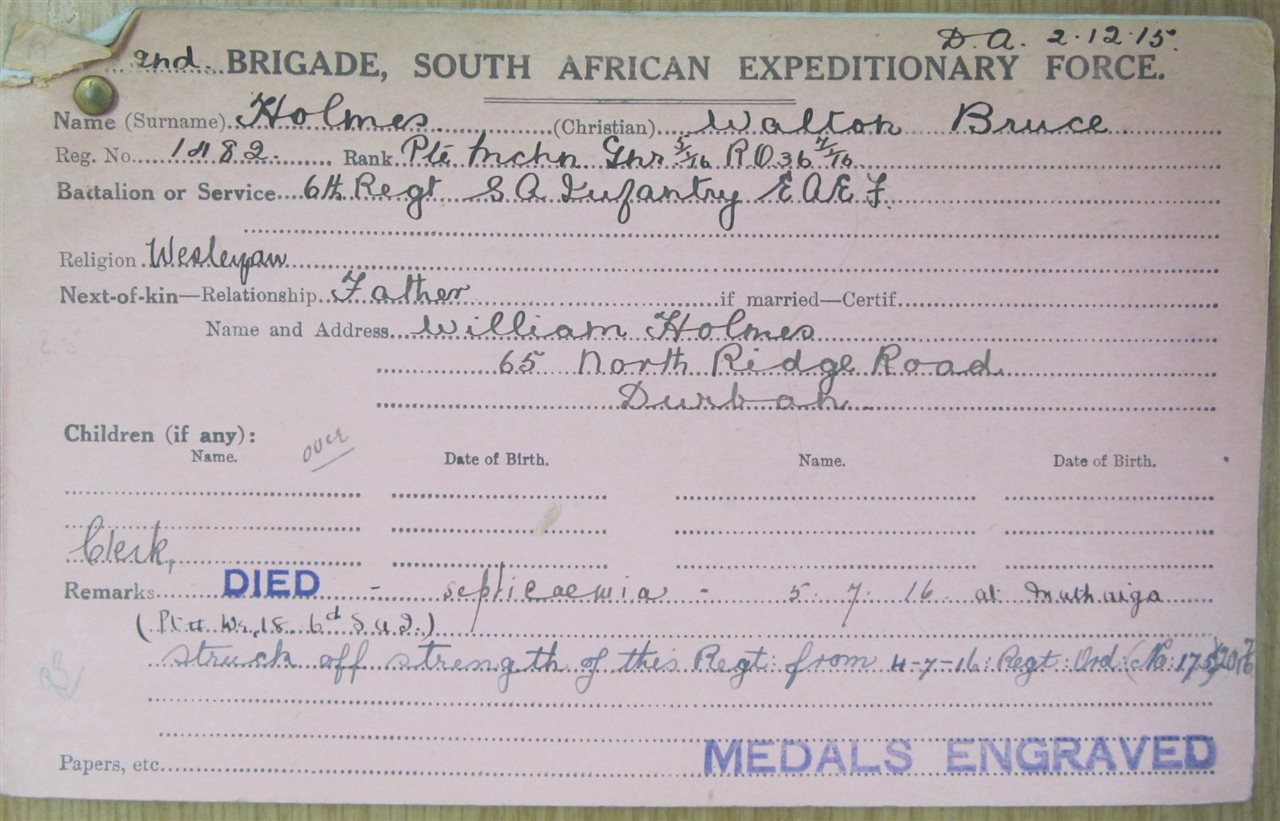 D.A. 2.12.15.
2nd. BRIGADE, SOUTH AFRICAN EXPEDITIONARY FORCE.
Name (Surname) Holmes (Christian) Walton Bruce
Reg. No. 1482. Rank Pte Mchn Gnr 5/5/16 R O 36 7/16
Battalion or Service 6th Regt S A Infantry E A E F.
Religion Wesleyan
Next-of-kin—Relationship Father if married—Certif.
Name and Address William Holmes
65 North Ridge Road
Durban
Children (if any):
over
Name. Date of Birth. Name. Date of Birth.
Clerk,
Remarks DIED - septicaemia - 5. 7. 16 at Muthaiga
(Pt II 18 6th S.A.I.)
Struck off strength of this Regt: from 4-7-16: Regt: Ord: (No: 175)
Papers, etc. MEDALS ENGRAVED